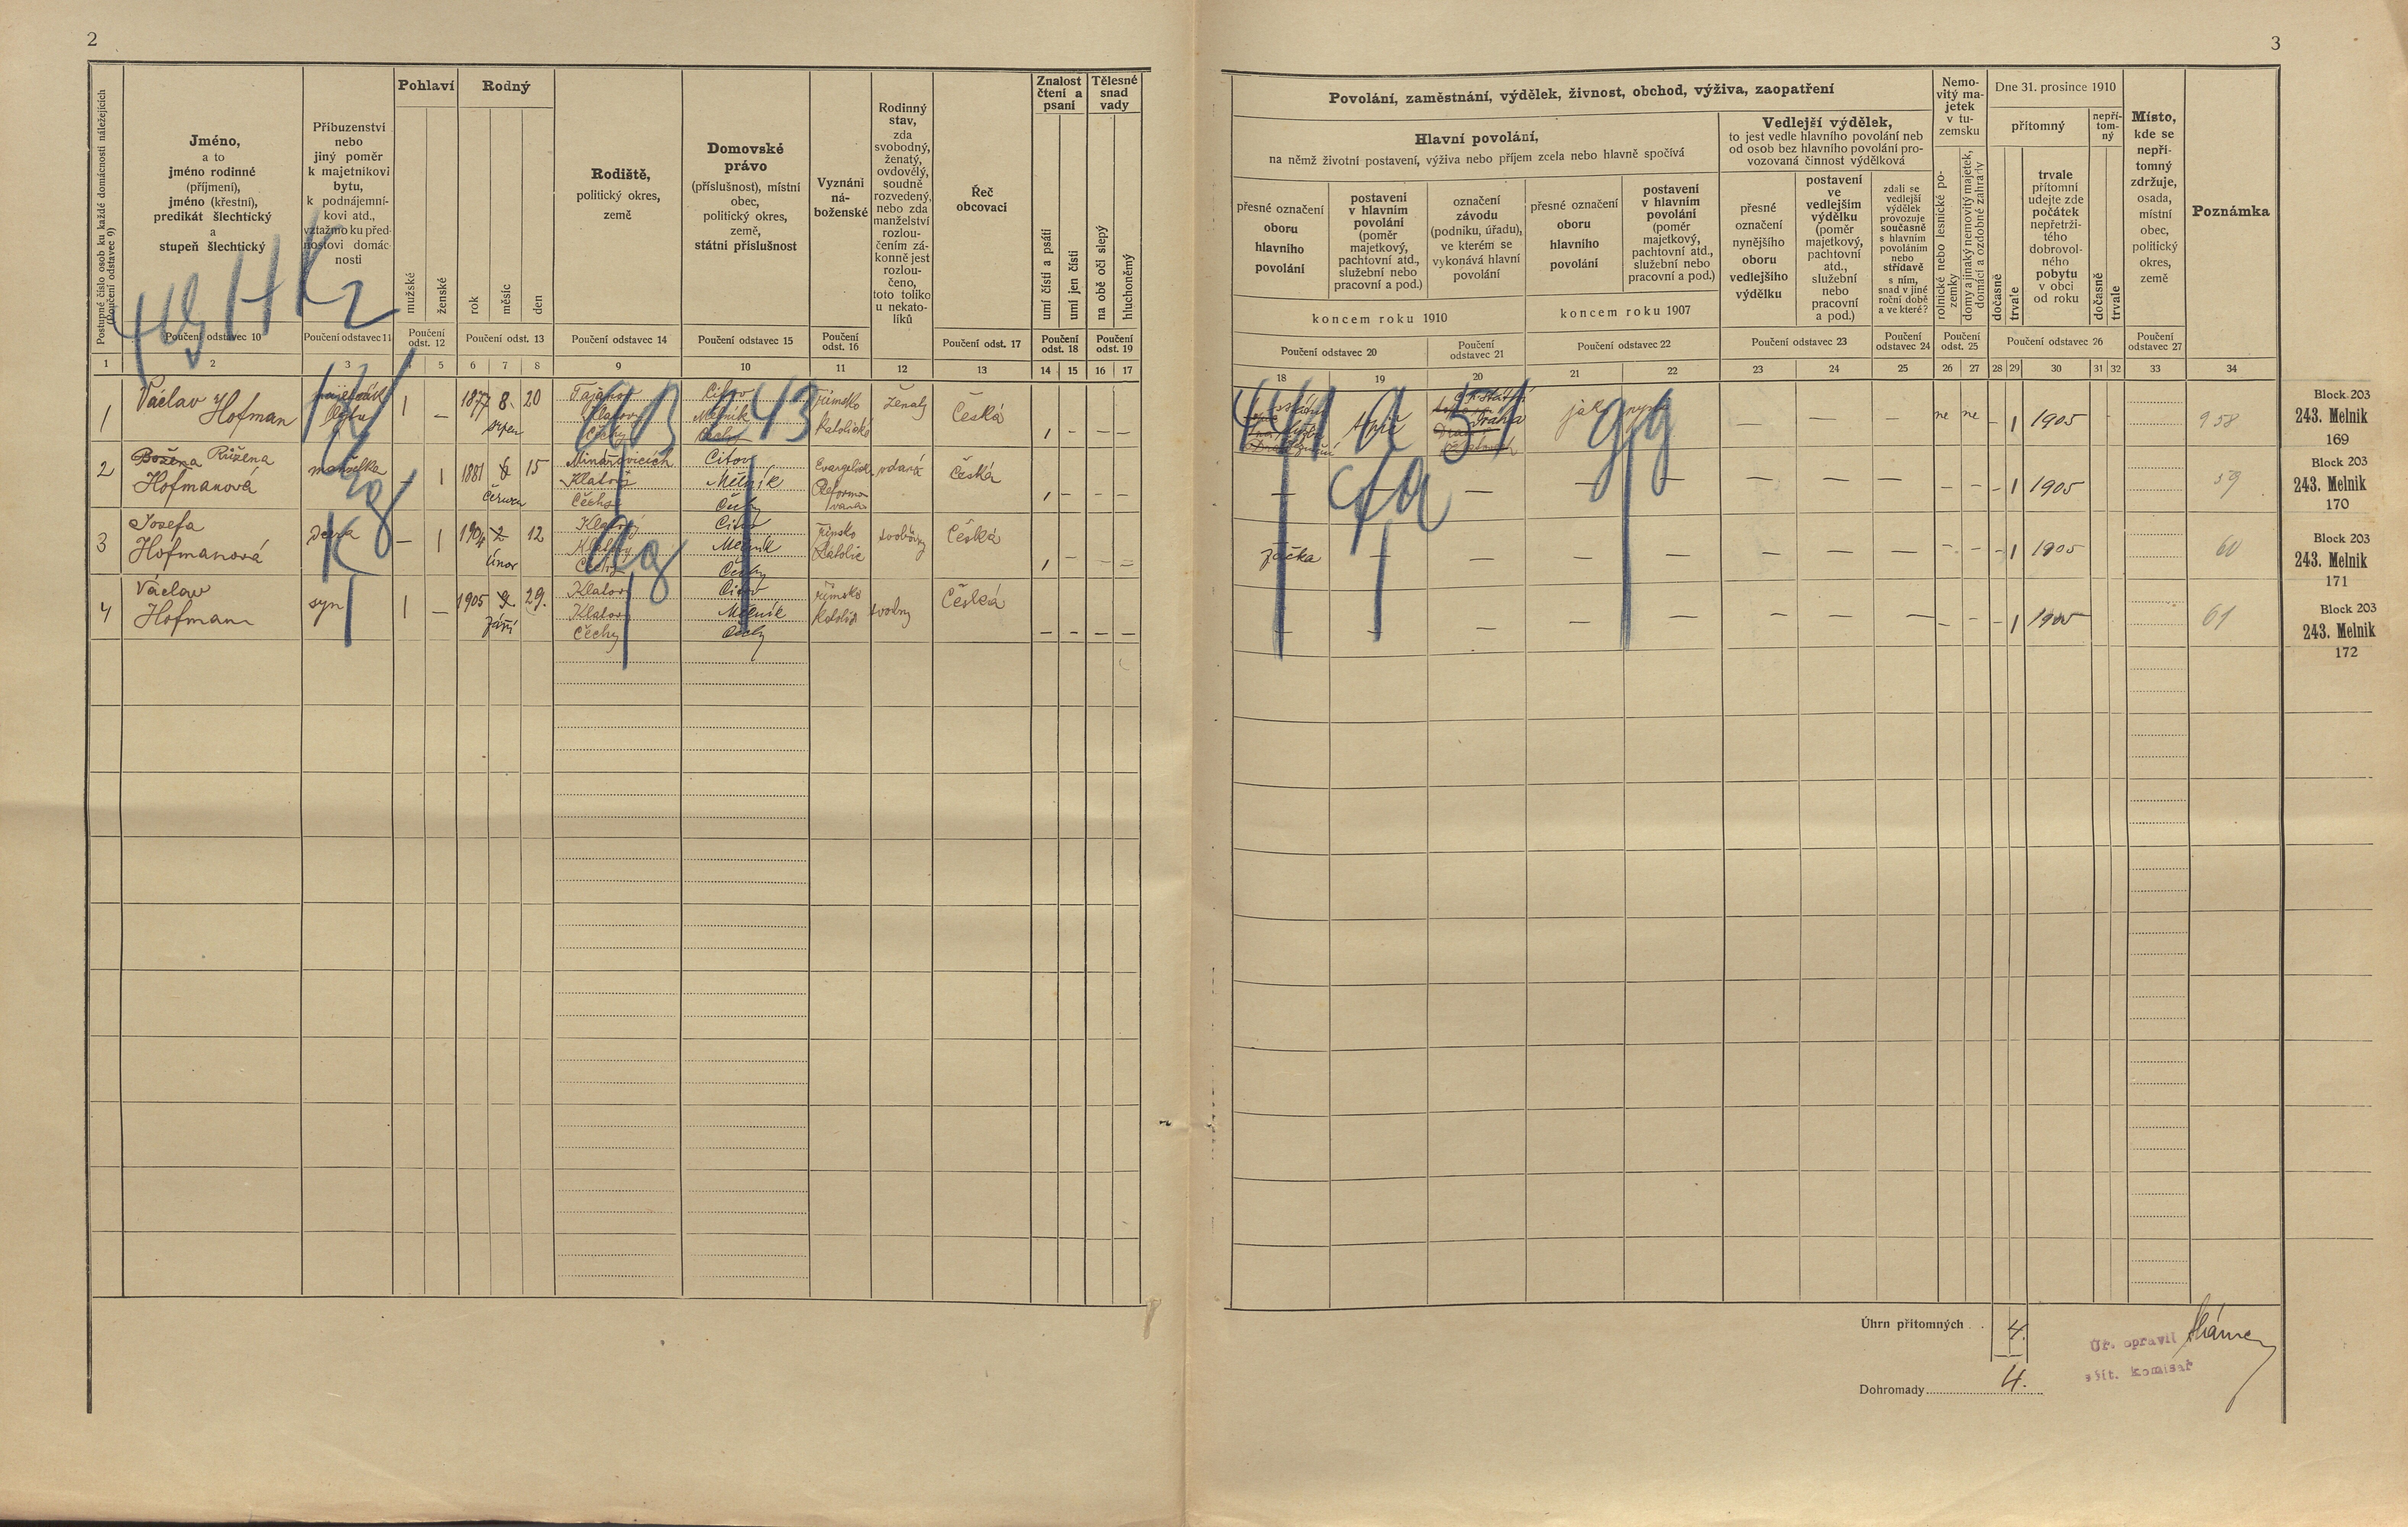 2
Postupné číslo osob ku každé domácnosti náležejících
(Poučení odstavec 9)
Jméno,
a to
jméno rodinné
(příjmení),
jméno (křestní),
predikát šlechtický
a
stupeň šlechtický
Poučení odstavec 10
Příbuzenství
nebo
jiný poměr
k majetníkovi
bytu,
k podnájemní-
kovi atd.,
vztažmo ku před-
nostovi domác-
nosti
Poučení odstavec 11
Pohlaví
mužské
ženské
Poučení
odst. 12
Rodný
rok
měsíc
den
Poučení odst. 13
Rodiště,
politický okres,
země
Poučení odstavec 14
Domovské
právo
(příslušnost), místní
obec,
politický okres,
země,
státní příslušnost
Poučení odstavec 15
Vyznání
ná-
boženské
Poučení
odst. 16
Rodinný
stav,
zda
svobodný,
ženatý,
ovdovělý,
soudně
rozvedený,
nebo zda
manželství
rozlou-
čením zá-
konně jest
rozlou-
čeno,
toto toliko
u nekato-
líků
Řeč
obcovací
Poučení odst. 17
Znalost
čtení a
psaní
umí čísti a psáti
umí jen čísti
Poučení
odst. 18
Tělesné
snad
vady
na obě oči slepý
hluchoněmý
Poučení
odst. 19
1 2 3 4 5 6 7 8 9 10 11 12 13 14 15 16 17
1 Václav Hofman
1 — 1877 8. 20
srpen
Klatovy
Čechy
Citov
Mělník
Čechy
římsko
katolické
ženatý
Česká
1 – — —
2 Božena Růžena
Hofmanová
manželka
— 1 1881 6 15
červen
Klatovy
Čechy
Citov
Mělník
Čechy
vdaná
Česká
1 – – –
3 Josefa
Hofmanová
dcera
— 1 1904 2 12
únor
Klatovy
Klatovy
Čechy
Citov
Mělník
Čechy
římsko
Česká
1 –
4 Václav
Hofman
syn
1 — 1905 9. 29.
září
Klatovy
Klatovy
Čechy
Citov
Mělník
Čechy
římsko
Česká
— — — —
3
Povolání, zaměstnání, výdělek, živnost, obchod, výživa, zaopatření
Hlavní povolání,
na němž životní postavení, výživa nebo příjem zcela nebo hlavně spočívá
přesné označení
oboru
hlavního
povolání
postavení
v hlavním
povolání
(poměr
majetkový,
pachtovní atd.,
služební nebo
pracovní a pod.)
označení
závodu
(podniku, úřadu),
ve kterém se
vykonává hlavní
povolání
koncem roku 1910
Poučení odstavec 20
Poučení
odstavec 21
přesné označení
oboru
hlavního
povolání
postavení
v hlavním
povolání
(poměr
majetkový,
pachtovní atd.,
služební nebo
pracovní a pod.)
koncem roku 1907
Poučení odstavec 22
Vedlejší výdělek,
to jest vedle hlavního povolání neb
od osob bez hlavního povolání pro-
vozovaná činnost výdělková
přesné
označení
nynějšího
oboru
vedlejšího
výdělku
postavení
ve
vedlejším
výdělku
(poměr
majetkový,
pachtovní
atd.,
služební
nebo
pracovní
a pod.)
Poučení odstavec 23
zdali se
vedlejší
výdělek
provozuje
současně
s hlavním
povoláním
nebo
střídavě
s ním,
snad v jiné
roční době
a ve které?
Poučení
odstavec 24
Nemo-
vitý ma-
jetek
v tu-
zemsku
rolnické nebo lesnické po-
zemky
domy a jinaký nemovitý majetek,
domácí a ozdobné zahrady
Poučení
odst. 25
Dne 31. prosince 1910
přítomný
dočasně
trvale
trvale
přítomní
udejte zde
počátek
nepřetrži-
tého
dobrovol-
ného
pobytu
v obci
od roku
nepří-
tom-
ný
dočasně
trvale
Poučení odstavec 26
Místo,
kde se
nepří-
tomný
zdržuje,
osada,
místní
obec,
politický
okres,
země
Poučení
odstavec 27
Poznámka
18 19 20 21 22 23 24 25 26 27 28 29 30 31 32 33 34
jako nyní
— — — ne ne – 1 1905 958
— — — — — – – – 1 1905 59
žačka
— — — — — – – – 1 1905 60
— — — — — — – – – 1 1905 61
Block 203
243. Melnik
169
Block 203
243. Melnik
170
Block 203
243. Melnik
171
Block 203
243. Melnik
172
Úhrn přítomných . . 4.
Dohromady 4.
Úř. opravil
sčít. komisař